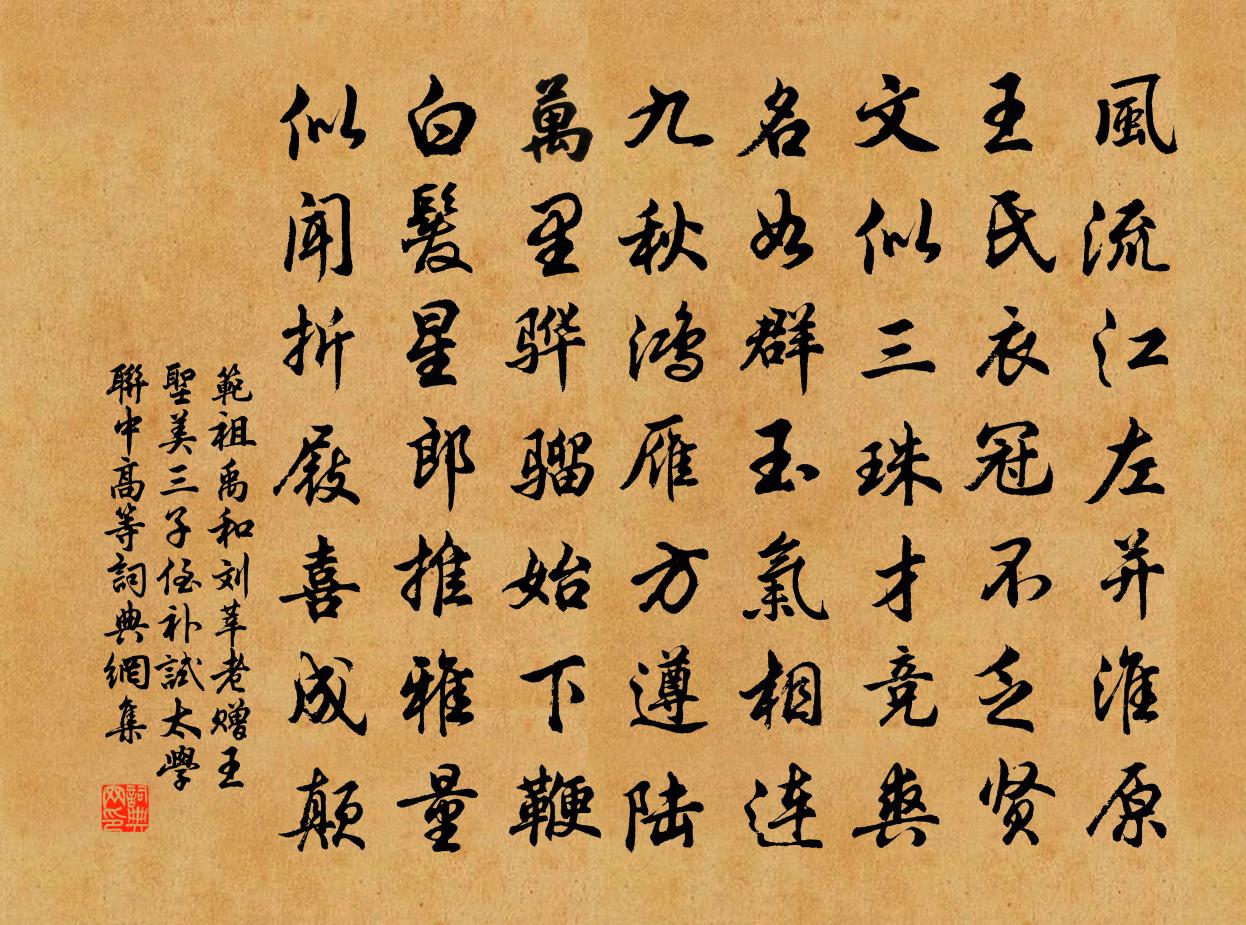 風流江左并淮原
王氏衣冠不乏贤
文似三珠才竞爽
名如群玉氣相连
九秋鸿雁方遵陆
萬里骅骝始下鞭
白髮星郎推雅量
似闻折屐喜成颠
範祖禹和刘莘老赠王
聖美三子侄补試太學
聯中高等詞典網集
詞典网印